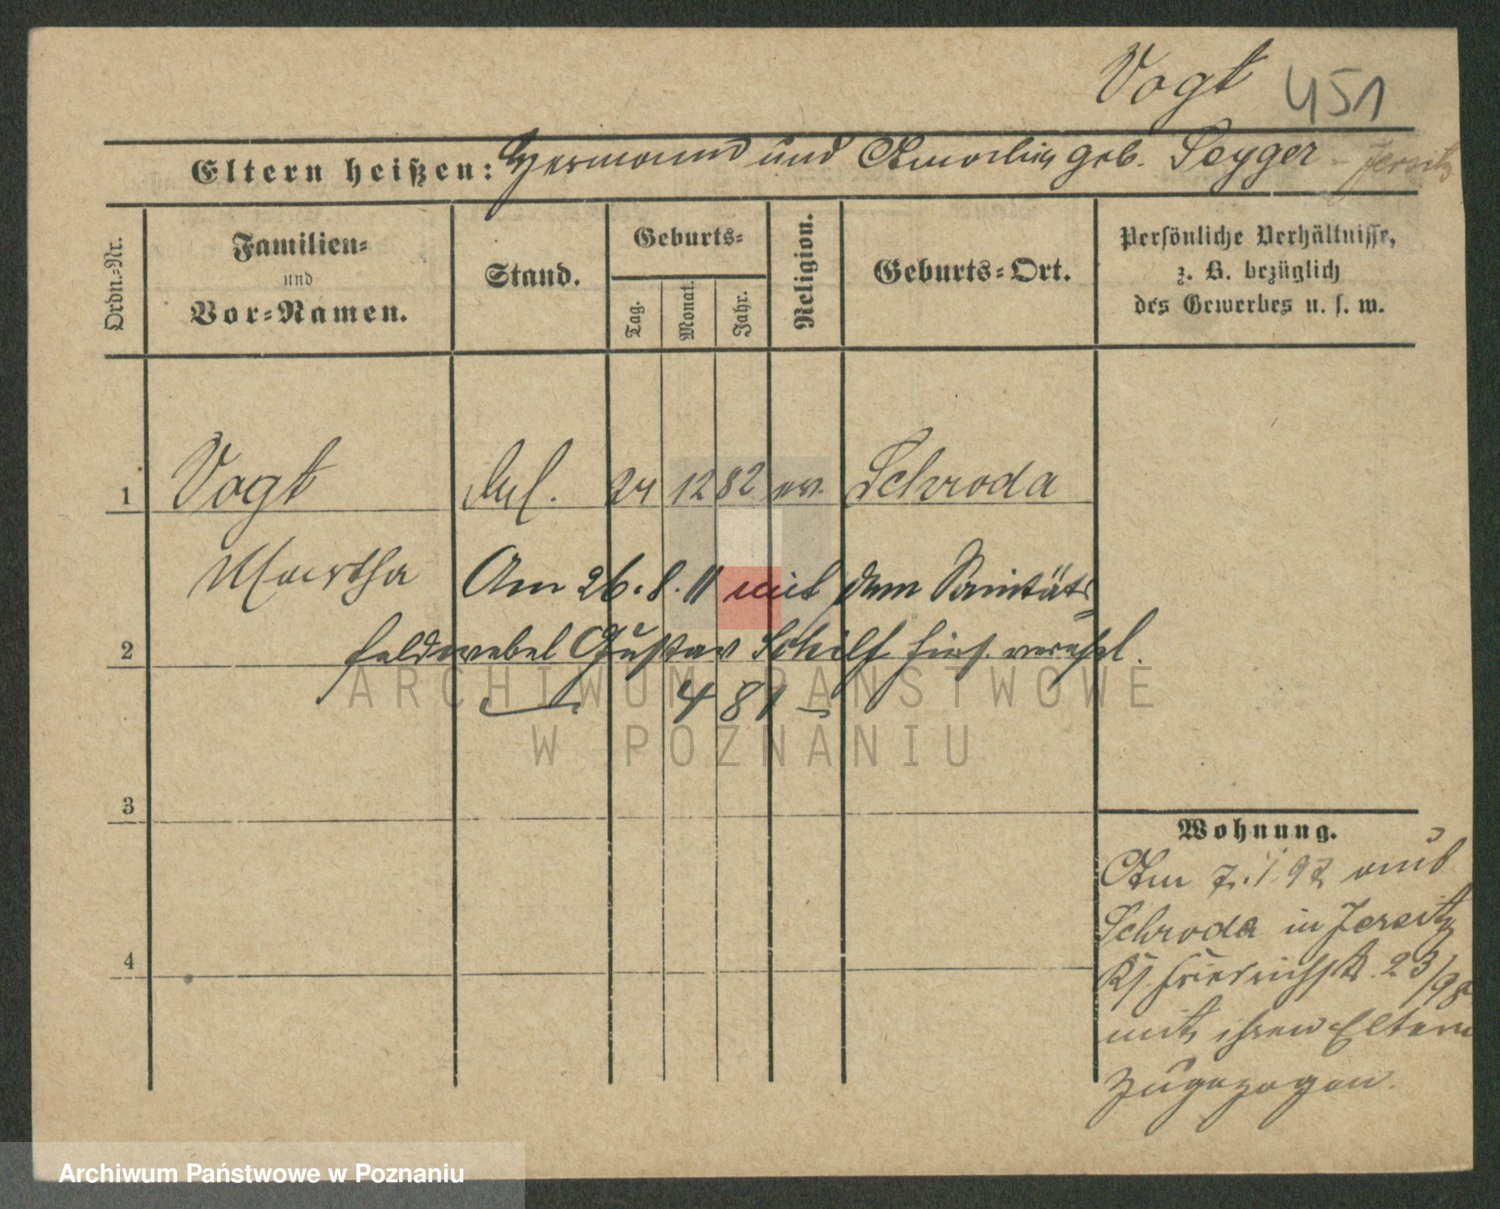 Vogt 451
Eltern heißen: Hermann und Amalie geb. Seyger - Jersitz
Ordn.-Nr.
Familien-
und
Vor-Namen.
Stand.
Geburts-
Tag.
Monat.
Jahr.
Religion.
Geburts-Ort.
Persönliche Verhältnisse,
z. B. bezüglich
des Gewerbes u. s. w.
1 Vogt 24 12 82 ev. Schroda
Martha Am 26.8.11 mit dem Sanitäts
2 feldwebel Gustav Schilf hier verehel.
481
3
4
Wohnung.
Am 7.1.92 aus
Schroda in Jersitz
23/98
mit ihren Eltern
zugezogen.
ARCHIWUM PAŃSTWOWE
W POZNANIU
Archiwum Państwowe w Poznaniu